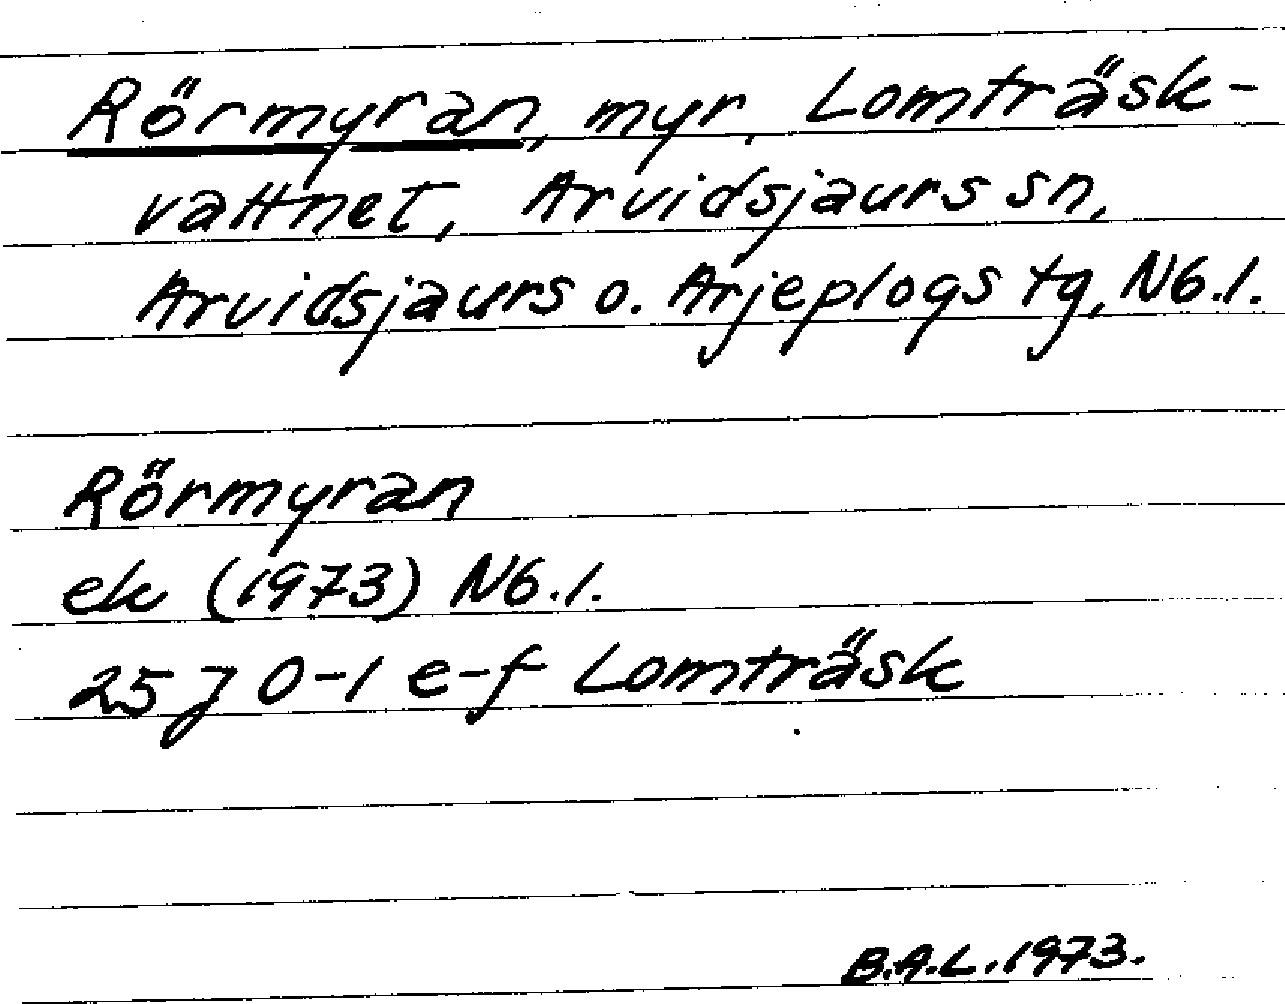 Rörmyran, myr, Lomträsk-
vattnet, Arvidsjaurs sn,
Arvidsjaurs o. Arjeplogs tg, Nb.l.
Rörmyran
ek (1973) Nb.l.
25 J 0-1 e-f Lomträsk
B.A.L. 1973.